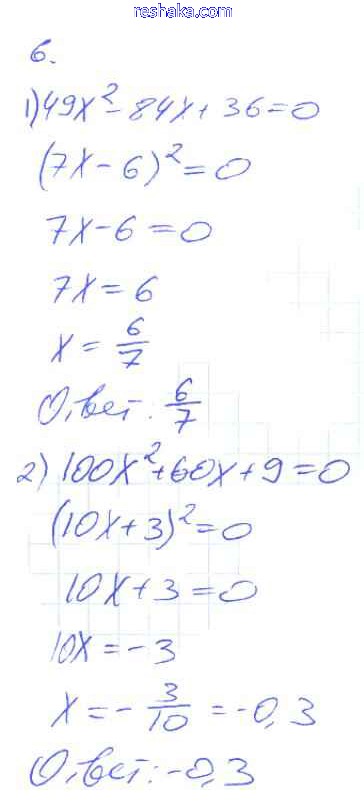 reshaka.com
6.
1) 49x² - 84x + 36 = 0
(7x - 6)² = 0
7x - 6 = 0
7x = 6
x = 6/7
Ответ: 6/7
2) 100x² + 60x + 9 = 0
(10x + 3)² = 0
10x + 3 = 0
10x = -3
x = - 3/10 = -0,3
Ответ: -0,3